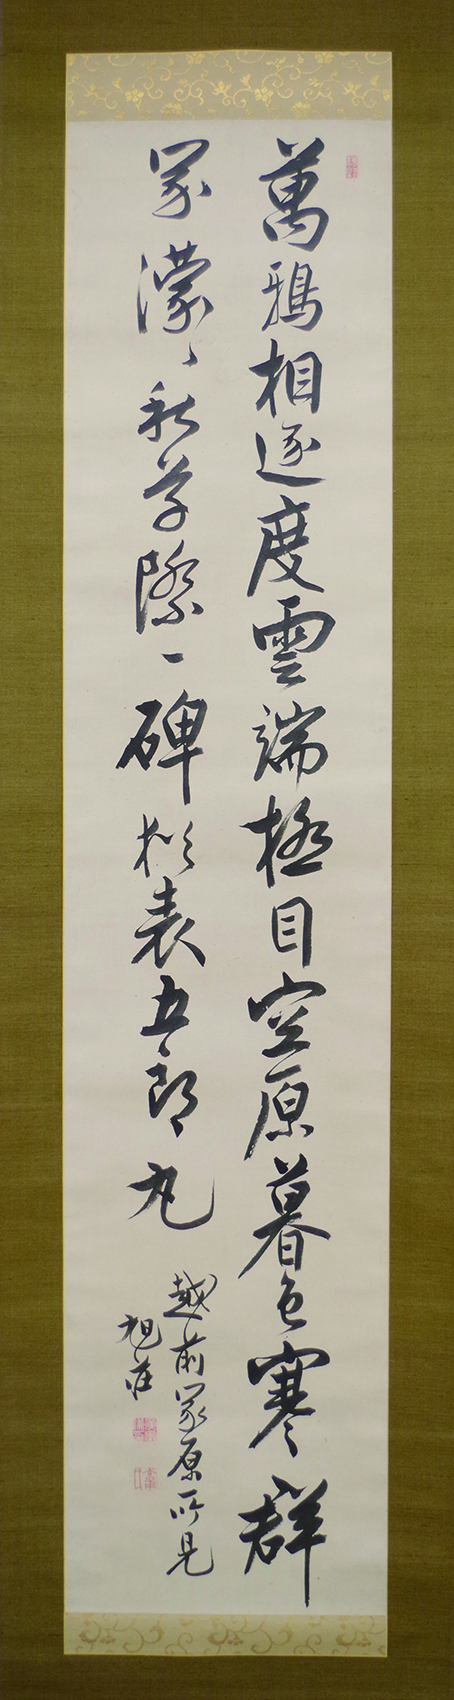 萬鴉相逐度雲端極目空原暮色寒群
冢濛〻秋草際一碑猶表五郎丸
越前冢原所見
旭荘